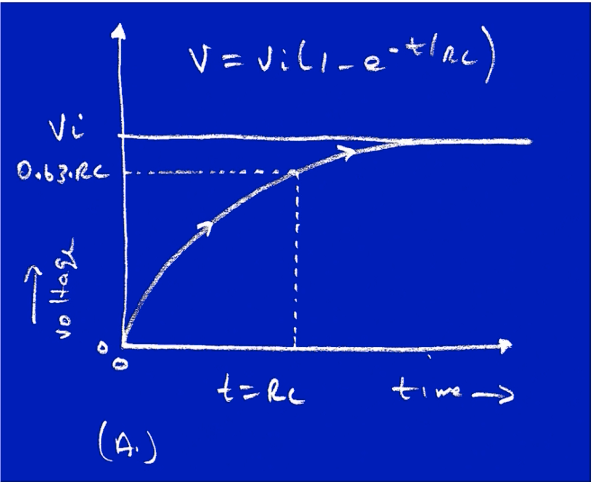 V = Vi(1-e^-t/RC)
Vi
0.63.RC
voltage
0
0
t=RC
time
(A.)